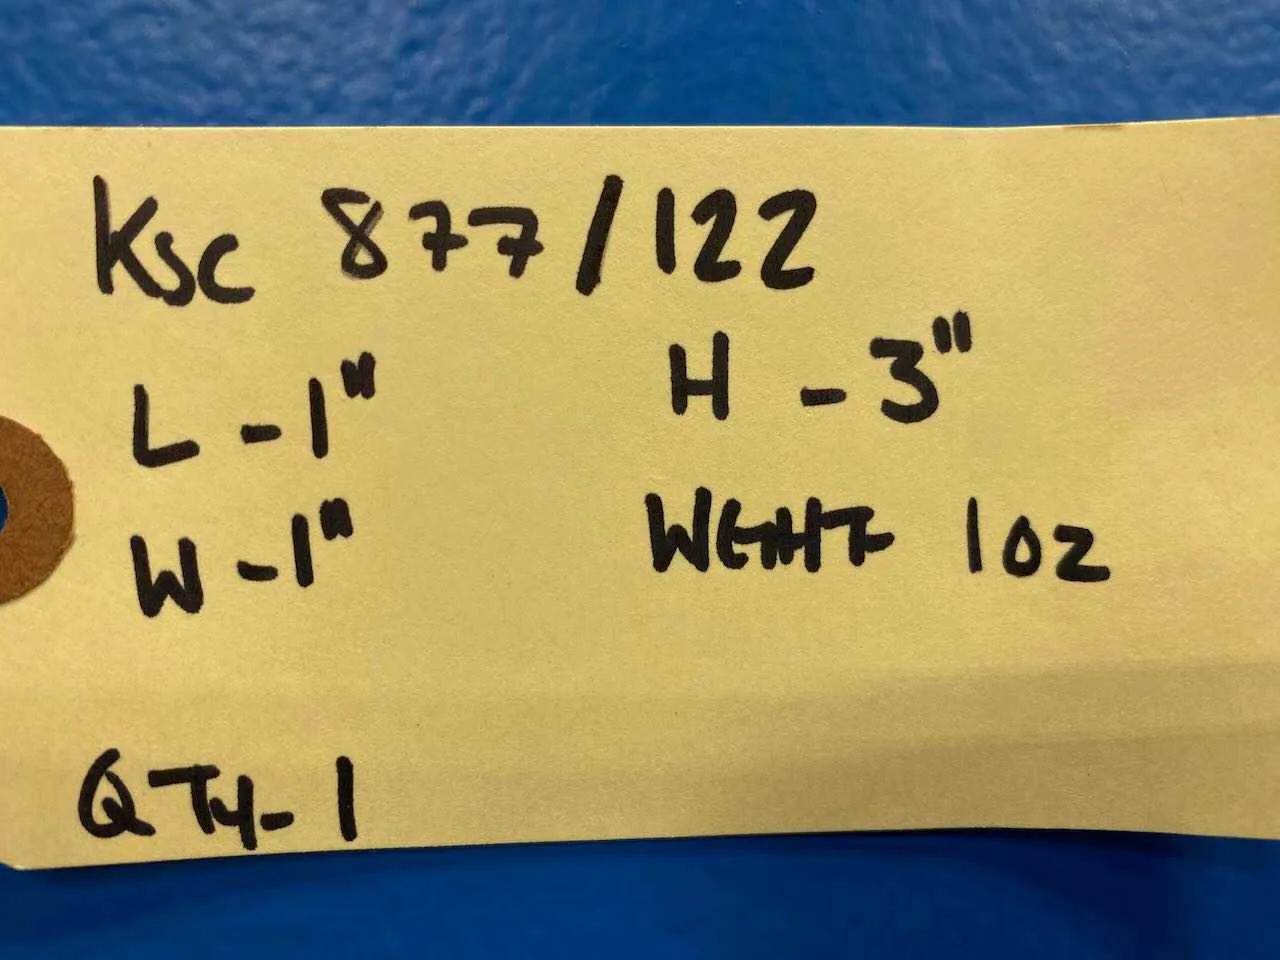 KSC 877/122
L - 1" H - 3"
W - 1" WEHT 1oz
QTY- 1